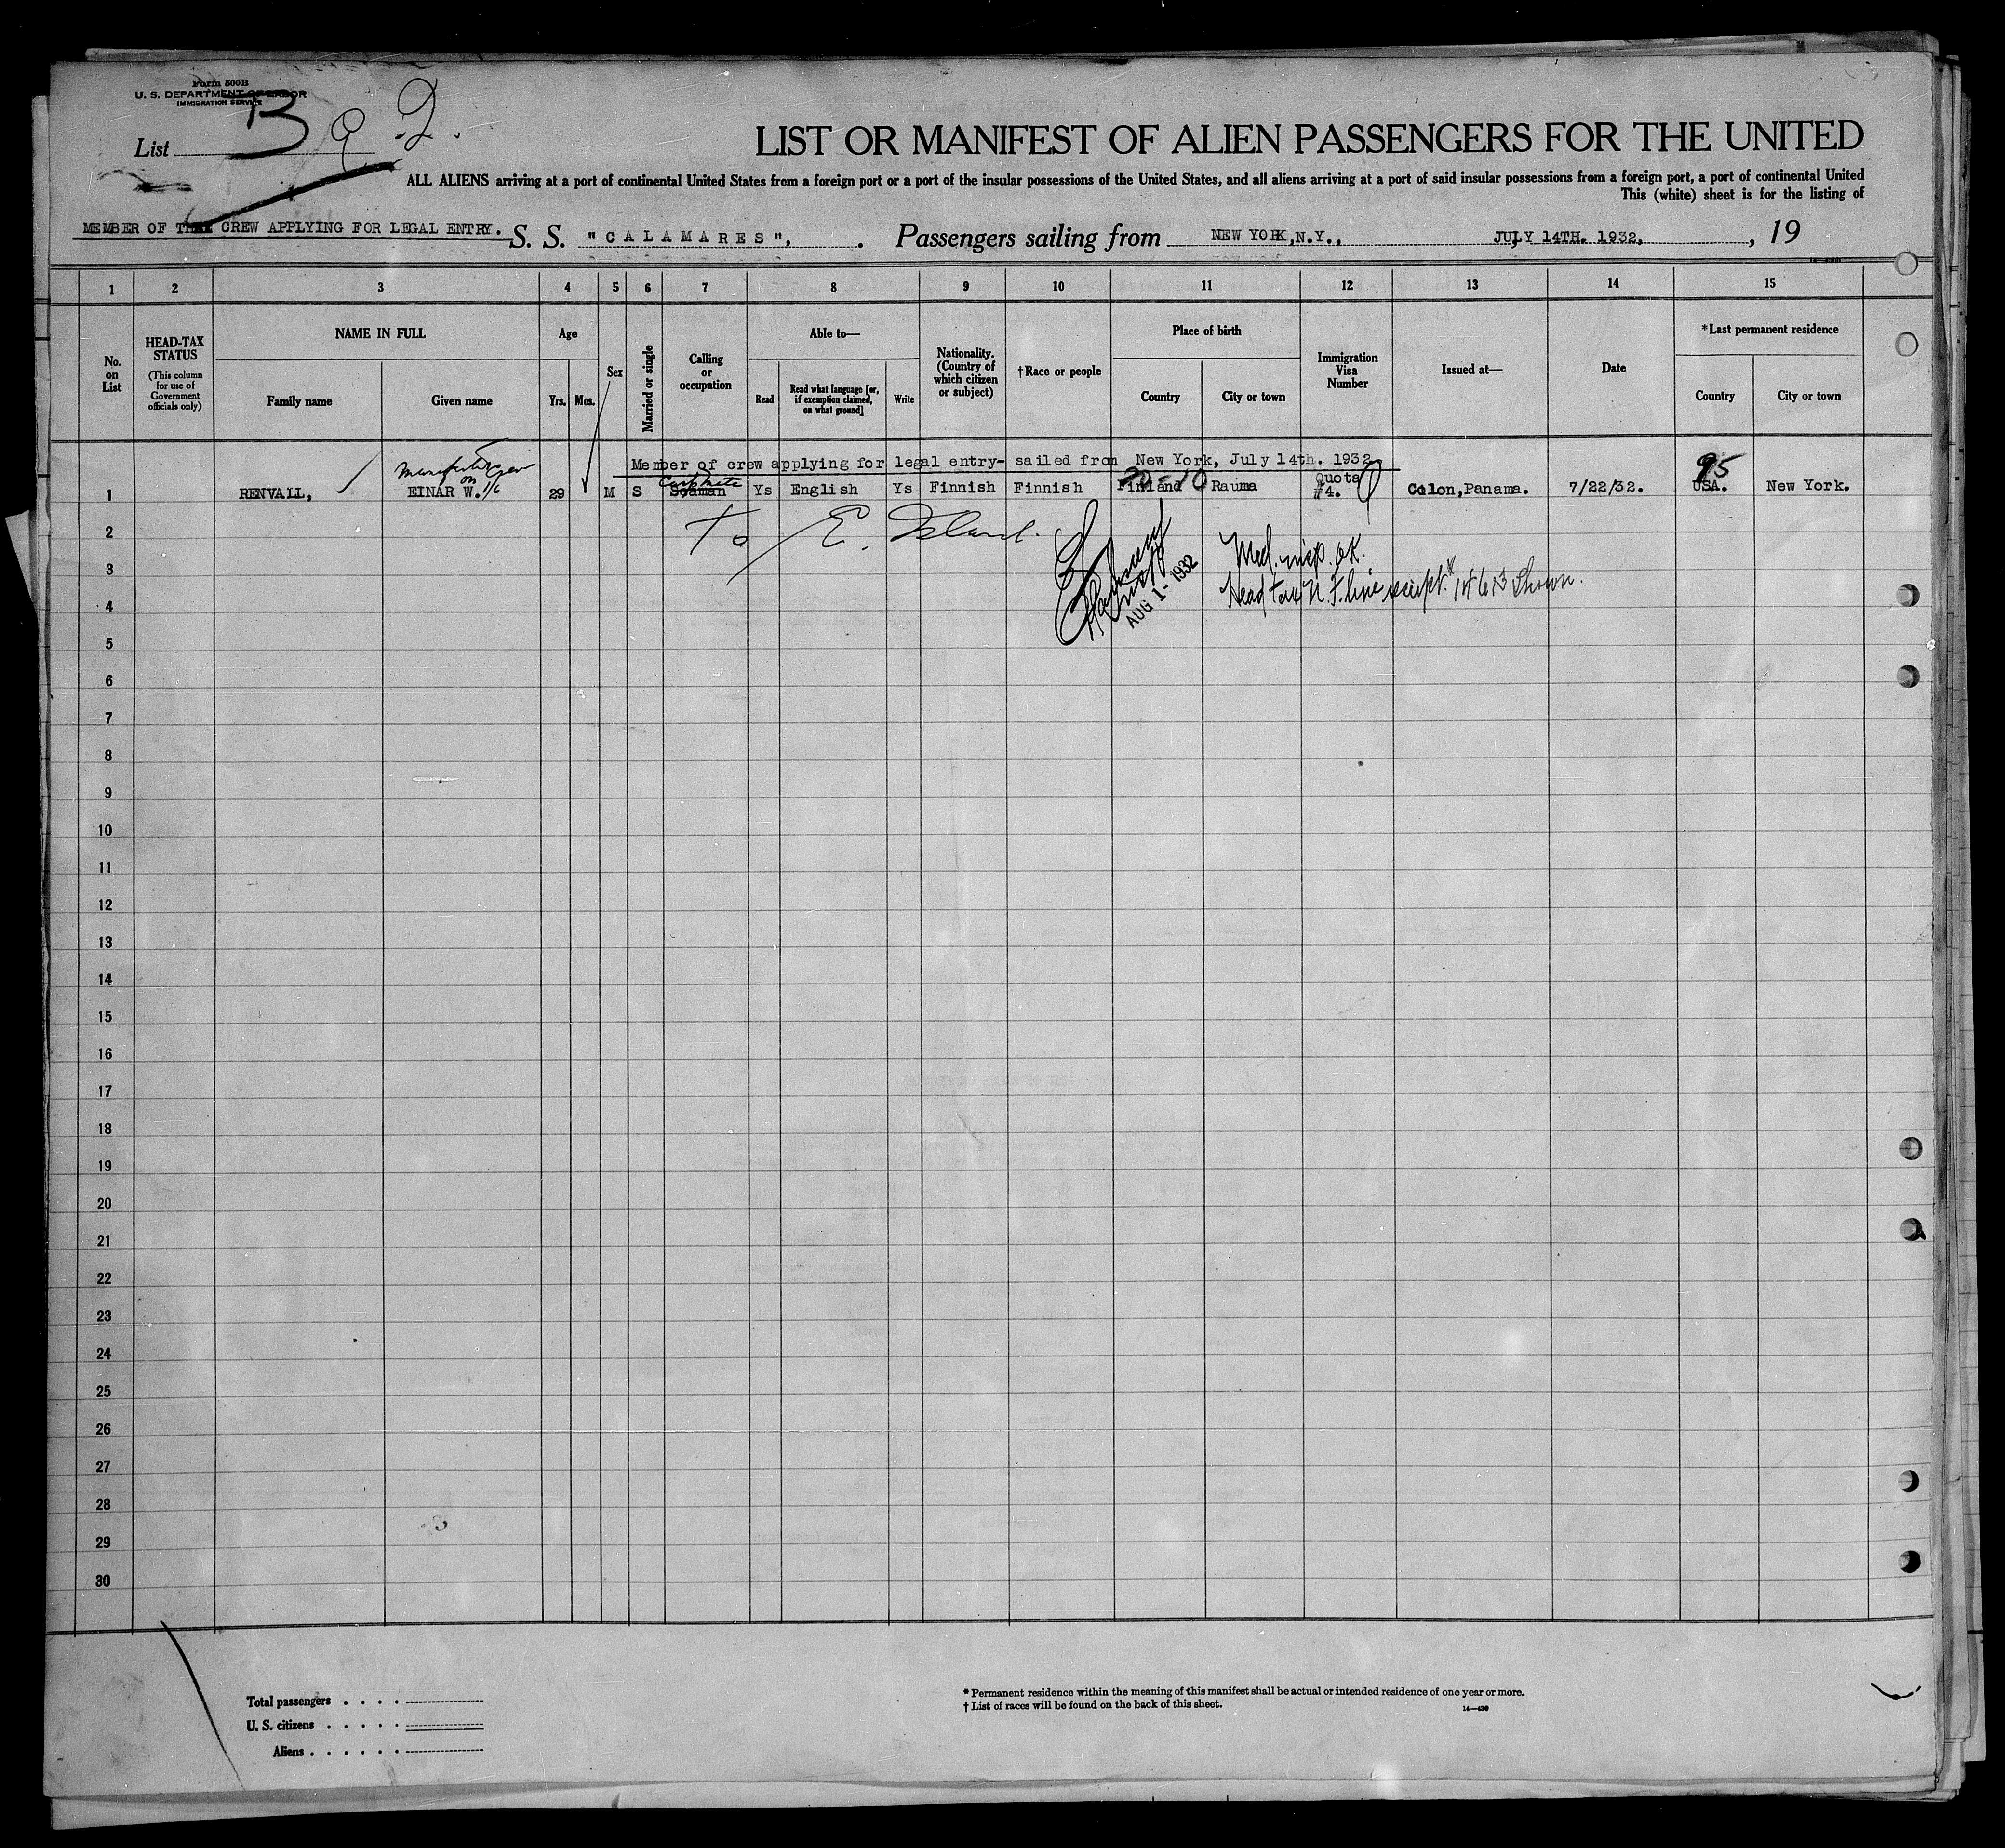 Form 500B
U. S. DEPARTMENT OF LABOR
IMMIGRATION SERVICE
List B
LIST OR MANIFEST OF ALIEN PASSENGERS FOR THE UNITED
ALL ALIENS arriving at a port of continental United States from a foreign port or a port of the insular possessions of the United States, and all aliens arriving at a port of said insular possessions from a foreign port, a port of continental United
This (white) sheet is for the listing of
MEMBER OF THE CREW APPLYING FOR LEGAL ENTRY. S. S. "CALAMARES", . Passengers sailing from NEW YORK, N.Y., JULY 14TH. 1932, , 19
1 2 3 4 5 6 7 8 9 10 11 12 13 14 15
No. on List
HEAD-TAX STATUS
(This column for use of Government officials only)
NAME IN FULL
Family name
Given name
Age
Yrs.
Mos.
Sex
Married or single
Calling or occupation
Able to—
Read
Read what language [or, if exemption claimed, on what ground]
Write
Nationality. (Country of which citizen or subject)
†Race or people
Place of birth
Country
City or town
Immigration Visa Number
Issued at—
Date
*Last permanent residence
Country
City or town
Member of crew applying for legal entry- sailed from New York, July 14th. 1932
95
1 RENVALL, EINAR W. 29 M S Seaman Ys English Ys Finnish Finnish Finland Rauma Quota #4. Colon, Panama. 7/22/32. USA. New York.
To E. Island.
AUG 1- 1932
Med. insp. ok.
Head tax U. F. line receipt # 14613 Shown.
2
3
4
5
6
7
8
9
10
11
12
13
14
15
16
17
18
19
20
21
22
23
24
25
26
27
28
29
30
Total passengers . . . .
U. S. citizens . . . . .
Aliens . . . . . .
* Permanent residence within the meaning of this manifest shall be actual or intended residence of one year or more.
† List of races will be found on the back of this sheet.
14—430